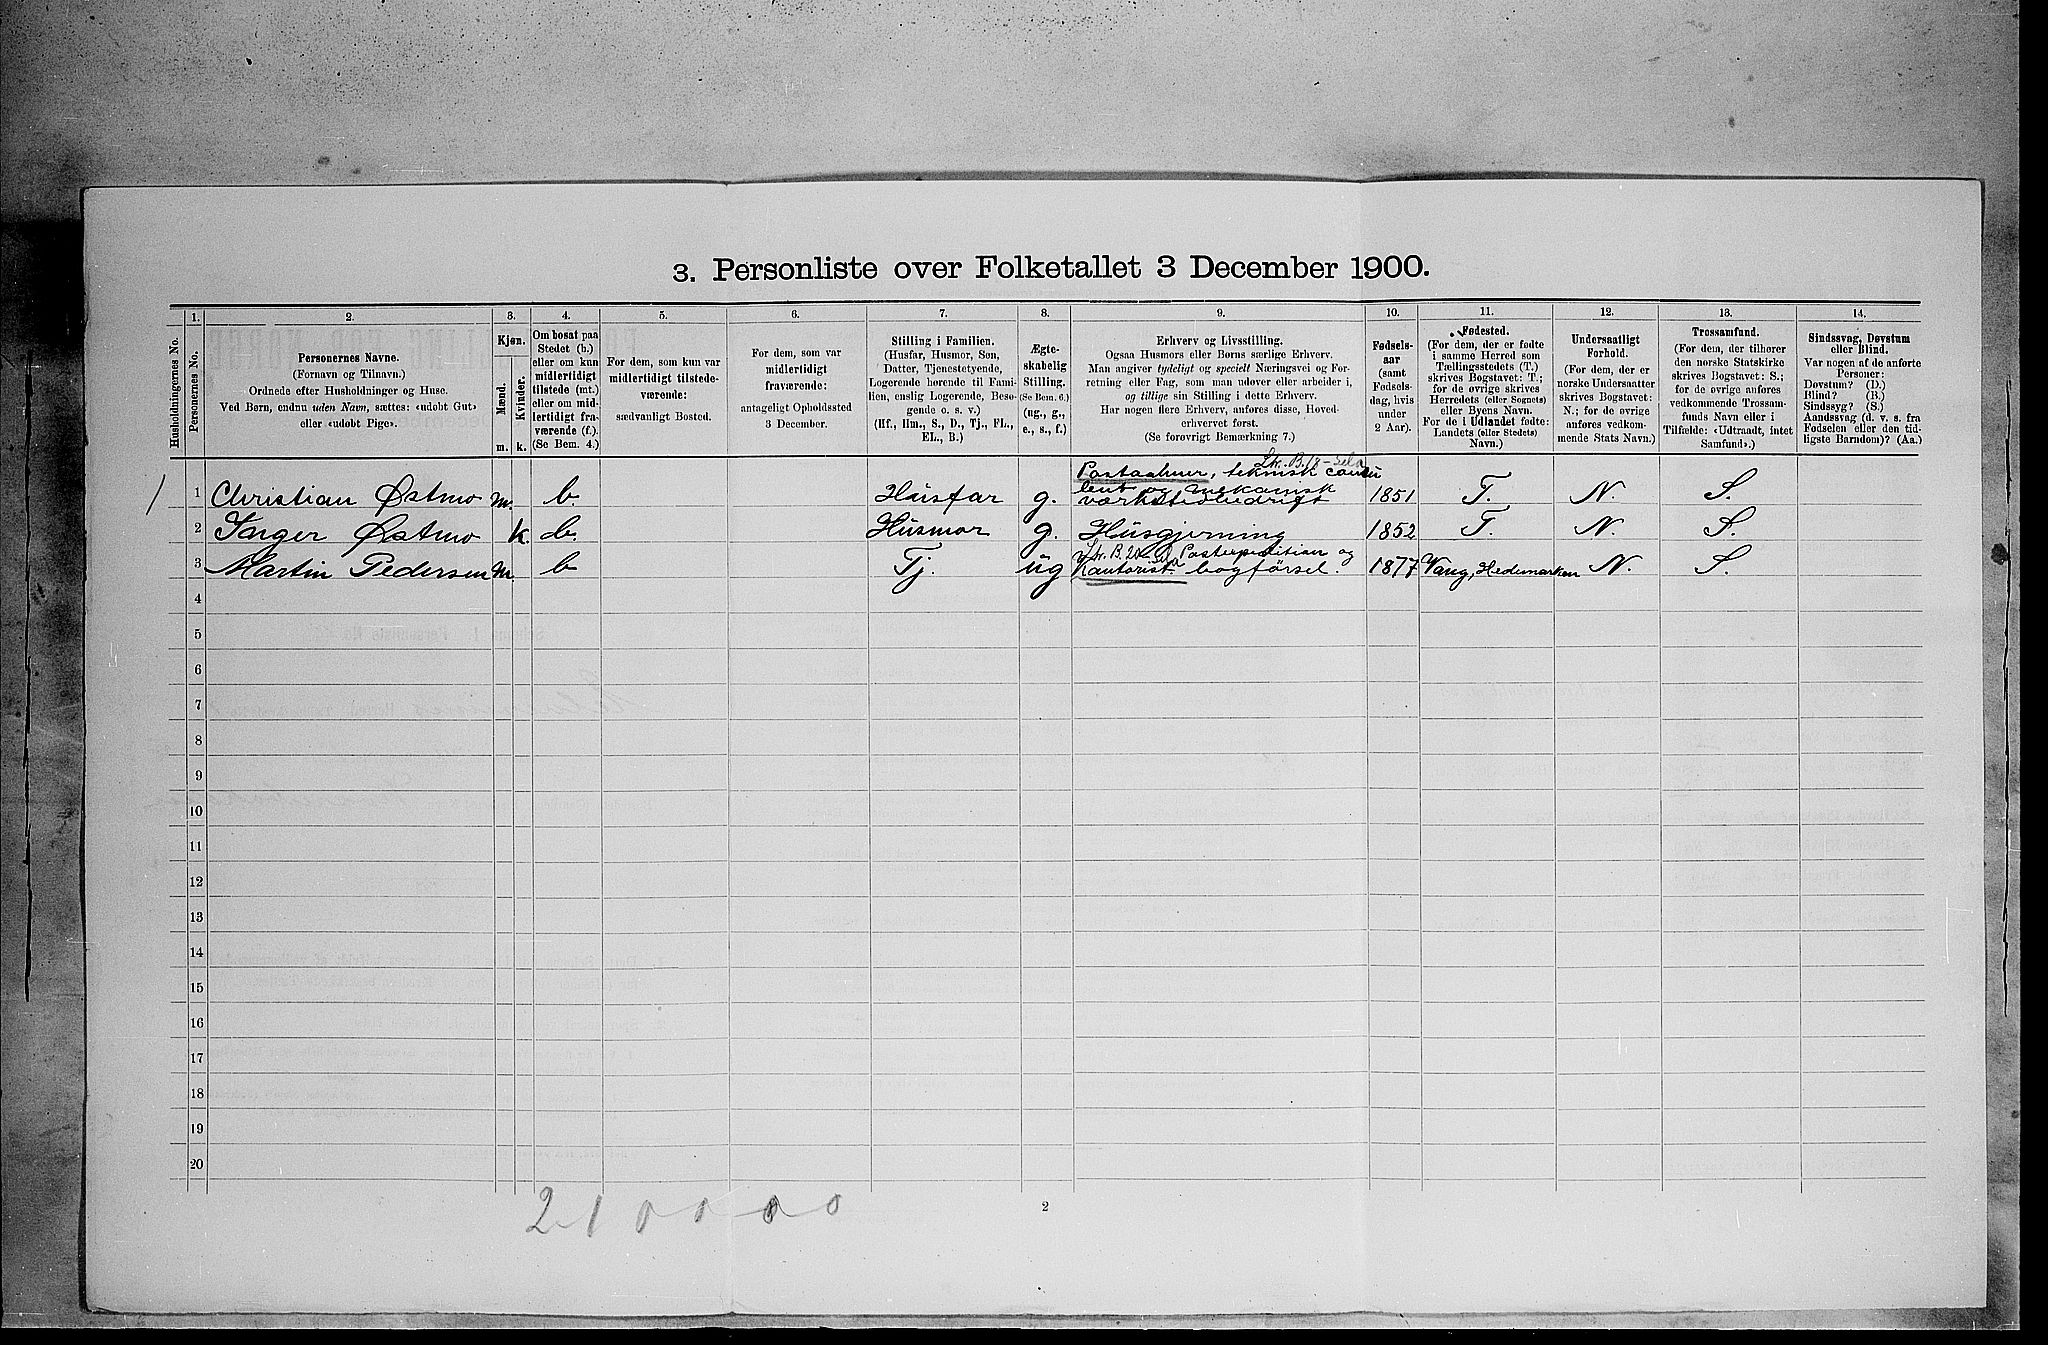 3. Personliste over Folketallet 3 December 1900.
Husholdningernes No.
1.
Personernes No.
2.
Personernes Navne.
(Fornavn og Tilnavn.)
Ordnede efter Husholdninger og Huse.
Ved Børn, endnu uden Navn, sættes: «udøbt Gut»
eller «udøbt Pige».
3.
Kjøn.
Mænd.
Kvinder.
m. k.
4.
Om bosat paa
Stedet (b.)
eller om kun
midlertidigt
tilstede (mt.)
eller om mid-
lertidigt fra-
værende (f.).
(Se Bem. 4.)
5.
For dem, som kun var
midlertidigt tilstede-
værende:
sædvanligt Bosted.
6.
For dem, som var
midlertidigt
fraværende:
antageligt Opholdssted
3 December.
7.
Stilling i Familien.
(Husfar, Husmor, Søn,
Datter, Tjenestetyende,
Logerende hørende til Fami-
lien, enslig Logerende, Besø-
gende o. s. v.)
(Hf., Hm., S., D., Tj., FL.,
EL., B.)
8.
Ægte-
skabelig
Stilling.
(Se Bem. 6.)
(ug., g.,
e., s., f.)
9.
Erhverv og Livsstilling.
Ogsaa Husmors eller Børns særlige Erhverv.
Man angiver tydeligt og specielt Næringsvei og For-
retning eller Fag, som man udøver eller arbeider i,
og tillige sin Stilling i dette Erhverv.
Har nogen flere Erhverv, anføres disse, Hoved-
erhvervet først.
(Se forøvrigt Bemærkning 7.)
10.
Fødsels-
aar
(samt
Fødsels-
dag, hvis
under
2 Aar).
11.
Fødested.
(For dem, der er fødte
i samme Herred som
Tællingsstedets (T.)
skrives Bogstavet: T.;
for de øvrige skrives
Herredets (eller Sognets)
eller Byens Navn.
For de i Udlandet fødte:
Landets (eller Stedets)
Navn.)
12.
Undersaatligt
Forhold.
(For dem, der er
norske Undersaatter
skrives Bogstavet:
N.; for de øvrige
anføres vedkom-
mende Stats Navn.)
13.
Trossamfund.
(For dem, der tilhører
den norske Statskirke
skrives Bogstavet: S.;
for de øvrige anføres
vedkommende Trossam-
funds Navn eller i
Tilfælde: «Udtraadt, intet
Samfund».)
14.
Sindssvag, Døvstum
eller Blind.
Var nogen af de anførte
Personer:
Døvstum? (D.)
Blind? (B.)
Sindssyg? (S.)
Aandssvag (d. v. s. fra
Fødselen eller den tid-
ligste Barndom)? (Aa.)
1 1 Christian Østmo m. b. Husfar g. Postaabner, teknisk consu
lent og mekanisk
værkstedudrift 1851 T. N. S.
2 Inger Østmo k b Husmor g. Husgjerning 1852 T. N. S.
3 Martin Pedersen m. b Tj. ug Postexpedition og
Kontorist. bogførsel. 1877 Vang, Hedemarken N. S.
4
5
6
7
8
9
10
11
12
13
14
15
16
17
18
19
20
2 1 0 0 0 0 0
2